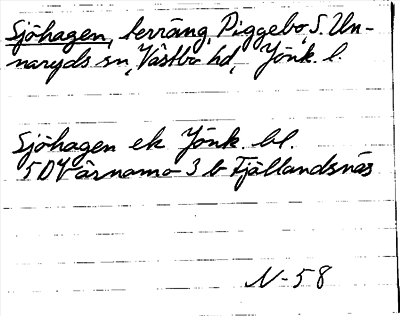 Sjöhagen, terräng, Piggebo, S. Un-
naryds sn, Västbo hd, Jönk. l.
Sjöhagen ek Jönk. bl.
5D Värnamo 3 b Fjällandsnäs
N-58